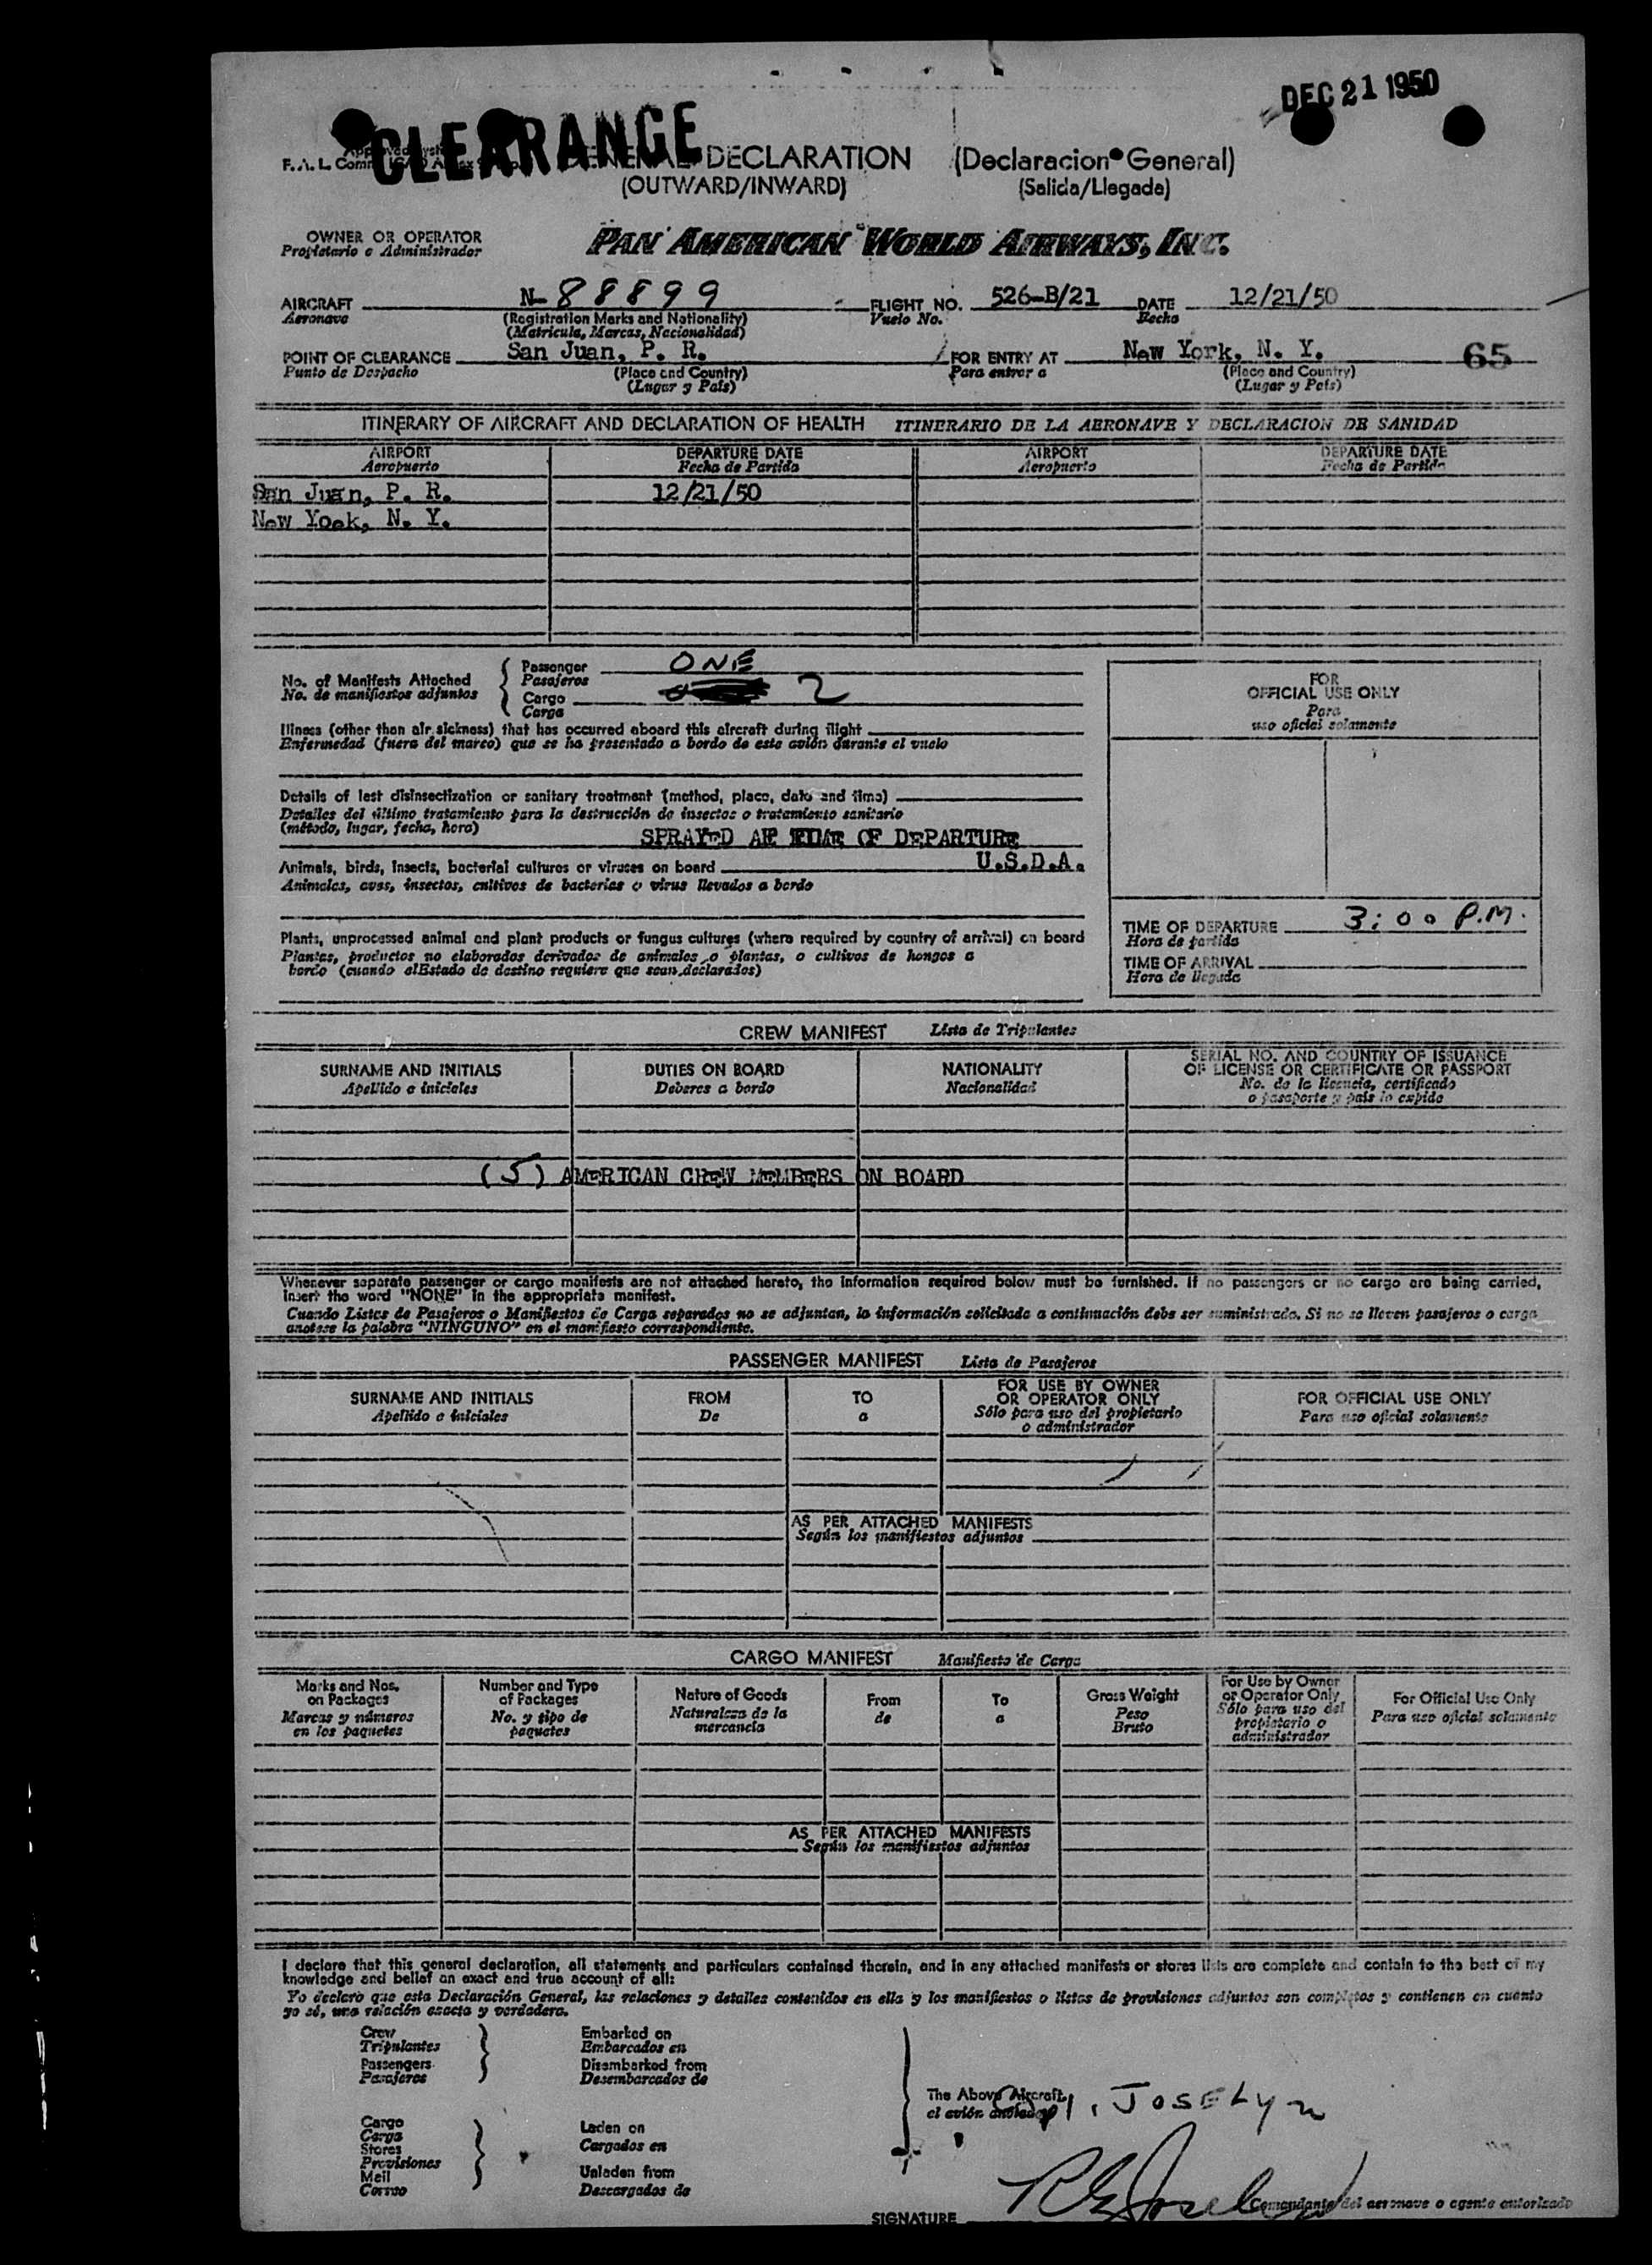 DEC 21 1950
CLEARANCE
F.A.L. Comm.
GENERAL DECLARATION (Declaracion General)
(OUTWARD/INWARD) (Salida/Llegada)
OWNER OR OPERATOR
Propietario o Administrador
PAN AMERICAN WORLD AIRWAYS, INC.
AIRCRAFT N-88899 FLIGHT NO. 526-B/21 DATE 12/21/50
Aeronave (Registration Marks and Nationality) Vuelo No. Fecha
(Matricula, Marcas, Nacionalidad)
POINT OF CLEARANCE San Juan, P. R. FOR ENTRY AT New York, N. Y. 65
Punto de Despacho (Place and Country) Para entrar a (Place and Country)
(Lugar y País) (Lugar y País)
ITINERARY OF AIRCRAFT AND DECLARATION OF HEALTH ITINERARIO DE LA AERONAVE Y DECLARACION DE SANIDAD
AIRPORT DEPARTURE DATE AIRPORT DEPARTURE DATE
Aeropuerto Fecha de Partida Aeropuerto Fecha de Partida
San Juan, P. R. 12/21/50
New Yook, N. Y.
No. of Manifests Attached
No. de manifiestos adjuntos
Passenger ONE
Pasajeros
Cargo 2
Carga
FOR
OFFICIAL USE ONLY
Para
uso oficial solamente
Illness (other than air sickness) that has occurred aboard this aircraft during flight
Enfermedad (fuera del mareo) que se ha presentado a bordo de este avión durante el vuelo
Details of last disinsectization or sanitary treatment (method, place, date and time)
Detalles del último tratamiento para la destrucción de insectos o tratamiento sanitario
(método, lugar, fecha, hora)
SPRAYED AT TIME OF DEPARTURE
Animals, birds, insects, bacterial cultures or viruses on board U.S.D.A.
Animales, aves, insectos, cultivos de bacterias o virus llevados a bordo
TIME OF DEPARTURE 3:00 P.M.
Hora de partida
TIME OF ARRIVAL
Hora de llegada
Plants, unprocessed animal and plant products or fungus cultures (where required by country of arrival) on board
Plantas, productos no elaborados derivados de animales o plantas, o cultivos de hongos a
bordo (cuando elEstado de destino requiere que sean declarados)
CREW MANIFEST Lista de Tripulantes
SURNAME AND INITIALS DUTIES ON BOARD NATIONALITY SERIAL NO. AND COUNTRY OF ISSUANCE
OF LICENSE OR CERTIFICATE OR PASSPORT
Apellido e iniciales Deberes a bordo Nacionalidad No. de la licencia, certificado
o pasaporte y país lo expide
(5) AMERICAN CREW MEMBERS ON BOARD
Whenever separate passenger or cargo manifests are not attached hereto, the information required below must be furnished. If no passengers or no cargo are being carried,
insert the word "NONE" in the appropriate manifest.
Cuando Listas de Pasajeros o Manifiestos de Carga separados no se adjuntan, la información solicitada a continuación debe ser suministrada. Si no se lleven pasajeros o carga
anotese la palabra "NINGUNO" en el manifiesto correspondiente.
PASSENGER MANIFEST Lista de Pasajeros
SURNAME AND INITIALS FROM TO FOR USE BY OWNER
OR OPERATOR ONLY FOR OFFICIAL USE ONLY
Apellido e iniciales De a Sólo para uso del propietario
o administrador Para uso oficial solamente
AS PER ATTACHED MANIFESTS
Según los manifiestos adjuntos
CARGO MANIFEST Manifiesto de Carga
Marks and Nos.
on Packages
Marcas y números
en los paquetes
Number and Type
of Packages
No. y tipo de
paquetes
Nature of Goods
Naturaleza de la
mercancía
From
de
To
a
Gross Weight
Peso
Bruto
For Use by Owner
or Operator Only
Sólo para uso del
propietario o
administrador
For Official Use Only
Para uso oficial solamente
AS PER ATTACHED MANIFESTS
Según los manifiestos adjuntos
I declare that this general declaration, all statements and particulars contained therein, and in any attached manifests or stores lists are complete and contain to the best of my
knowledge and belief an exact and true account of all:
Yo declaro que esta Declaración General, las relaciones y detalles contenidos en ella y los manifiestos o listas de provisiones adjuntos son completos y contienen en cuanto
yo sé, una relación exacta y verdadera.
Crew
Tripulantes
Passengers
Pasajeros
Embarked on
Embarcados en
Disembarked from
Desembarcados de
Cargo
Carga
Stores
Provisiones
Mail
Correo
Laden on
Cargados en
Unladen from
Descargados de
The Above Aircraft
el avión
JOSELYN
Comandante del aeronave o agente autorizado
SIGNATURE